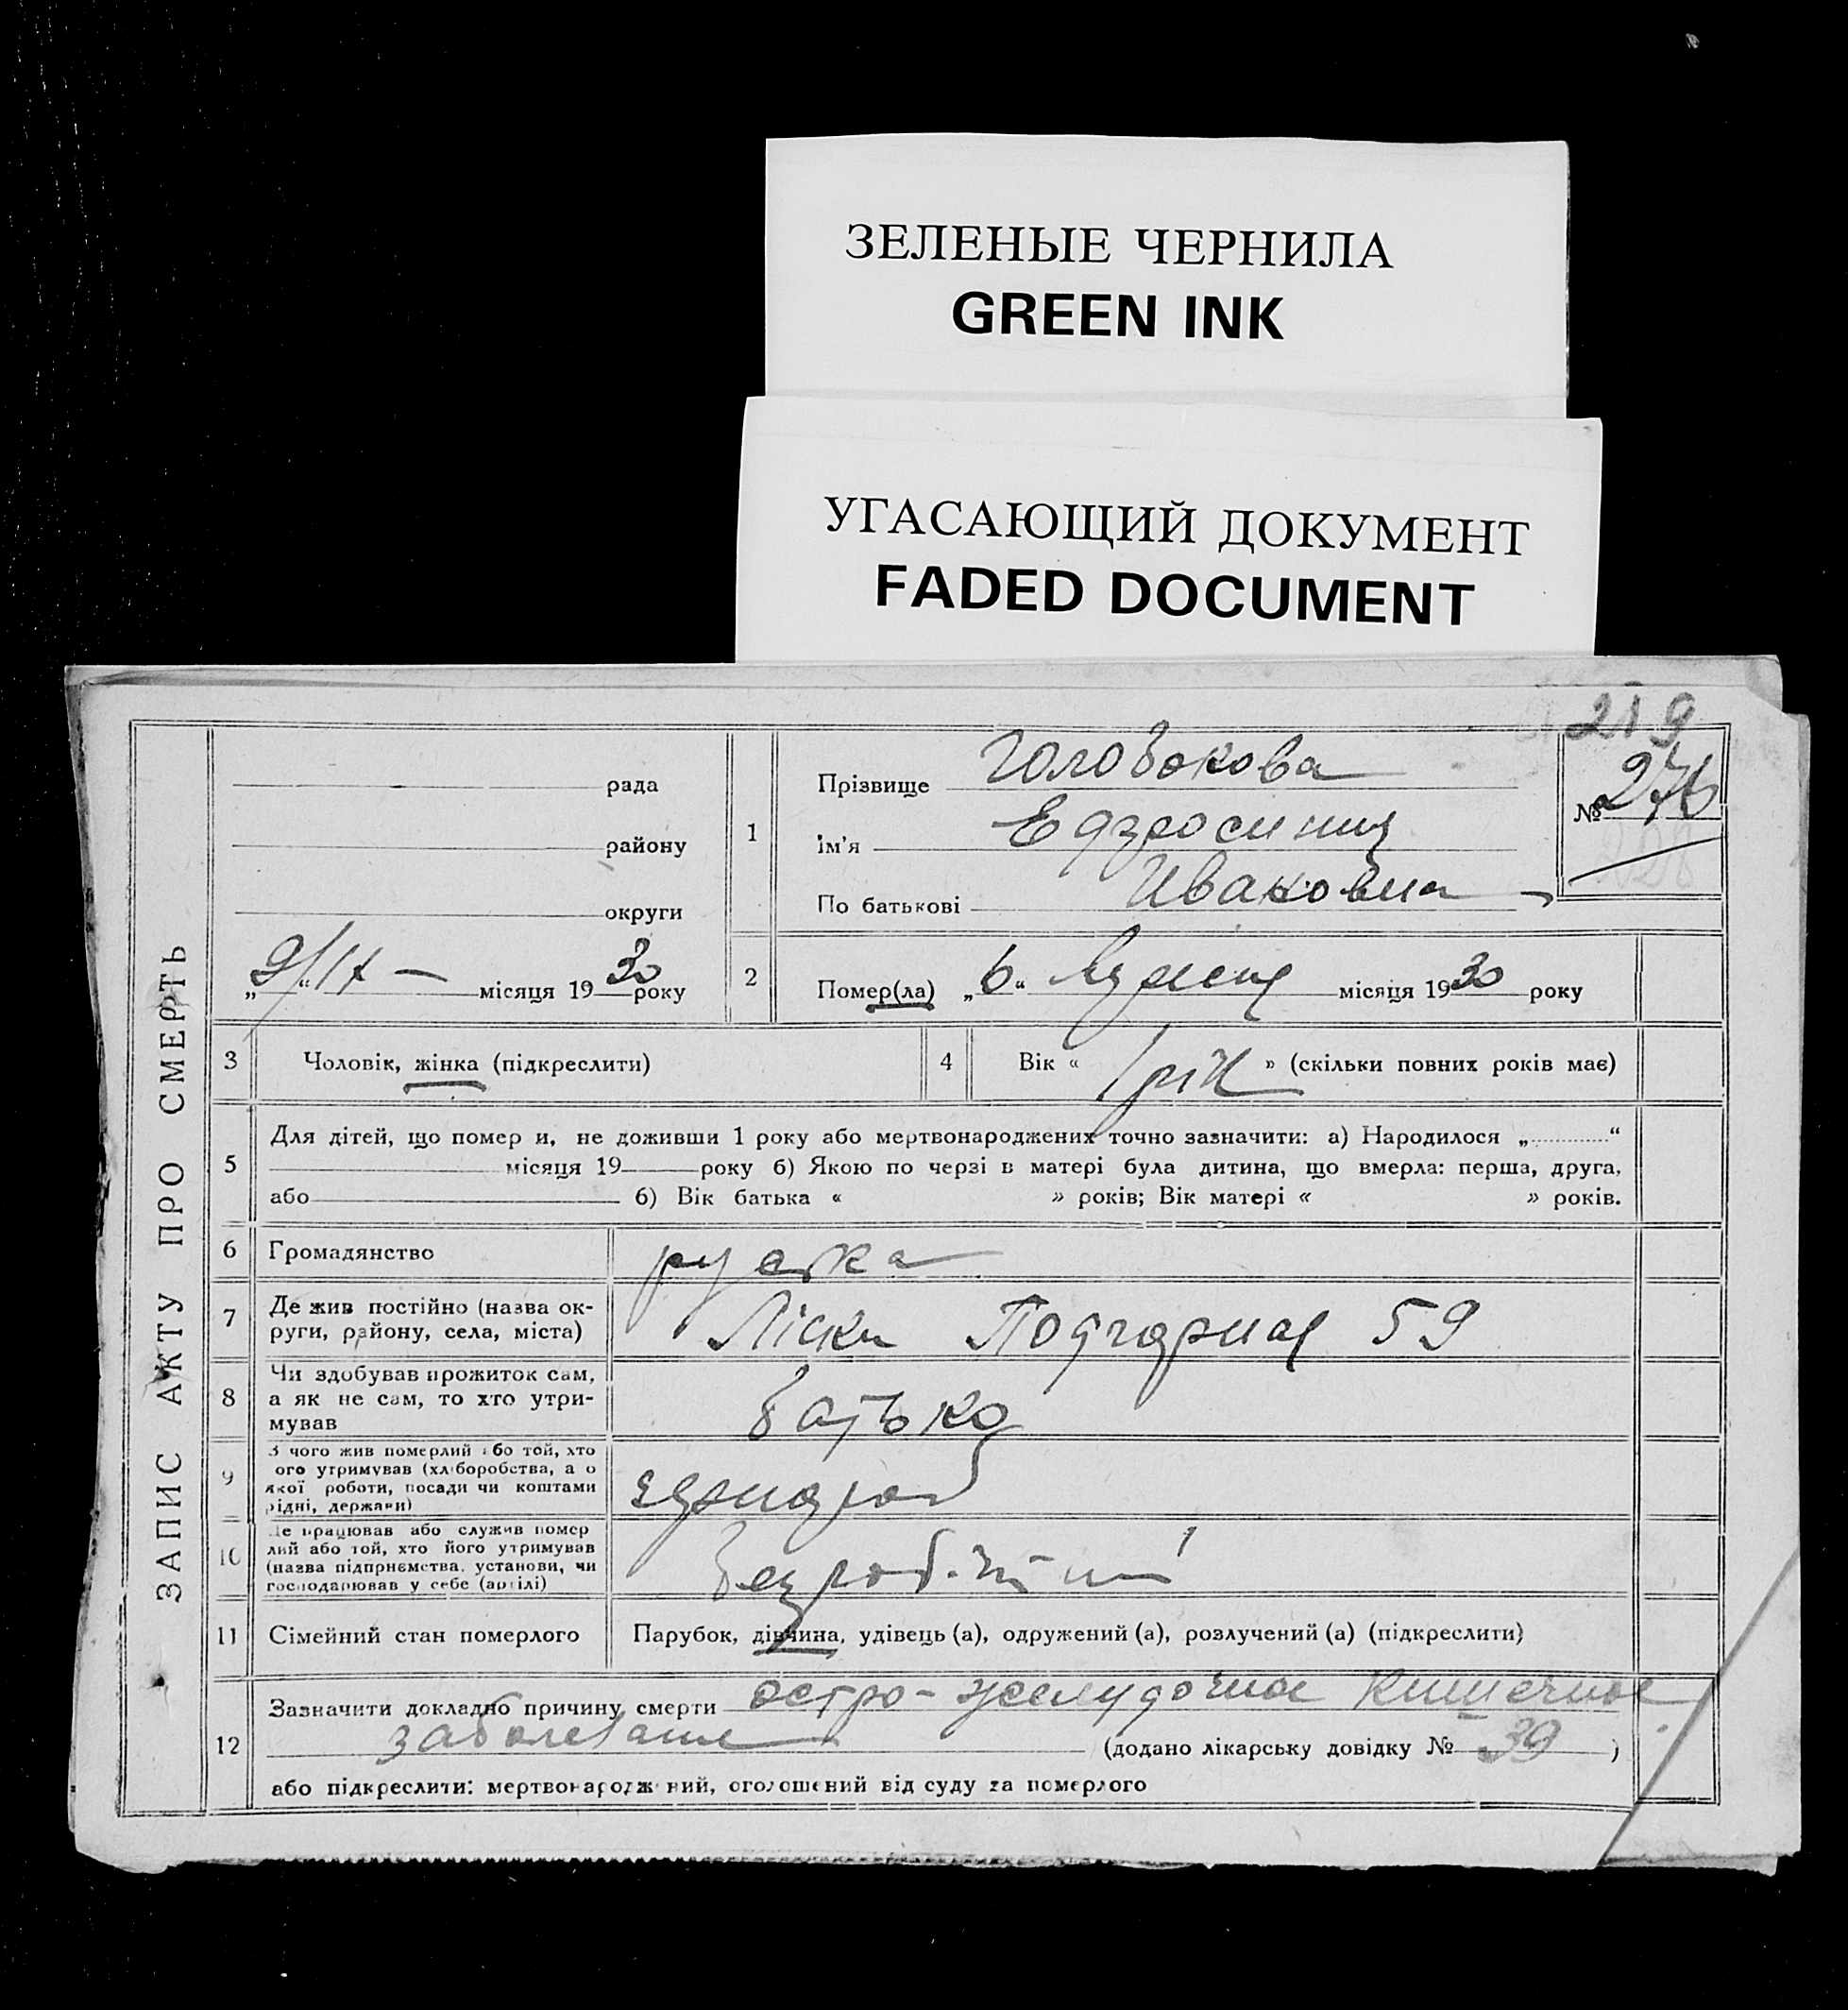 ЗЕЛЕНЫЕ ЧЕРНИЛА
GREEN INK
УГАСАЮЩИЙ ДОКУМЕНТ
FADED DOCUMENT
219
ЗАПИС АКТУ ПРО СМЕРТЬ
рада
району
округи
„9/IX“ — місяця 1930 року
1
Прізвище
Ім'я
По батькові Ивановна
№ 276
2
Помер(ла) „6“ місяця 1930 року
3
Чоловік, жінка (підкреслити)
4
Вік « 1 рік » (скільки повних років має)
5
Для дітей, що помер и, не доживши 1 року або мертвонароджених точно зазначити: а) Народилося „ “
місяця 19 року б) Якою по черзі в матері була дитина, що вмерла: перша, друга,
або б) Вік батька « » років; Вік матері « » років.
6
Громадянство руська
7
Де жив постійно (назва ок-
руги, району, села, міста)
Ліски Подгорная 59
8
Чи здобував прожиток сам,
а як не сам, то хто утри-
мував
батько
9
З чого жив померлий або той, хто
ого утримував (хліборобства, а о
якої роботи, посади чи коштами
рідні, держави)
10
Де працював або служив помер
лий або той, хто його утримував
(назва підприємства, установи, чи
господарював у себе (артілі)
безробітний
11
Сімейний стан померлого
Парубок, дівчина, удівець (а), одружений (а), розлучений (а) (підкреслити)
12
Зазначити докладно причину смерти остро-желудочное кишечное
заболевание (додано лікарську довідку № 39 )
або підкреслити: мертвонароджений, оголошений від суду за померлого